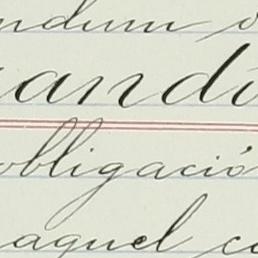 ndum o
andi
obligació
aquel co